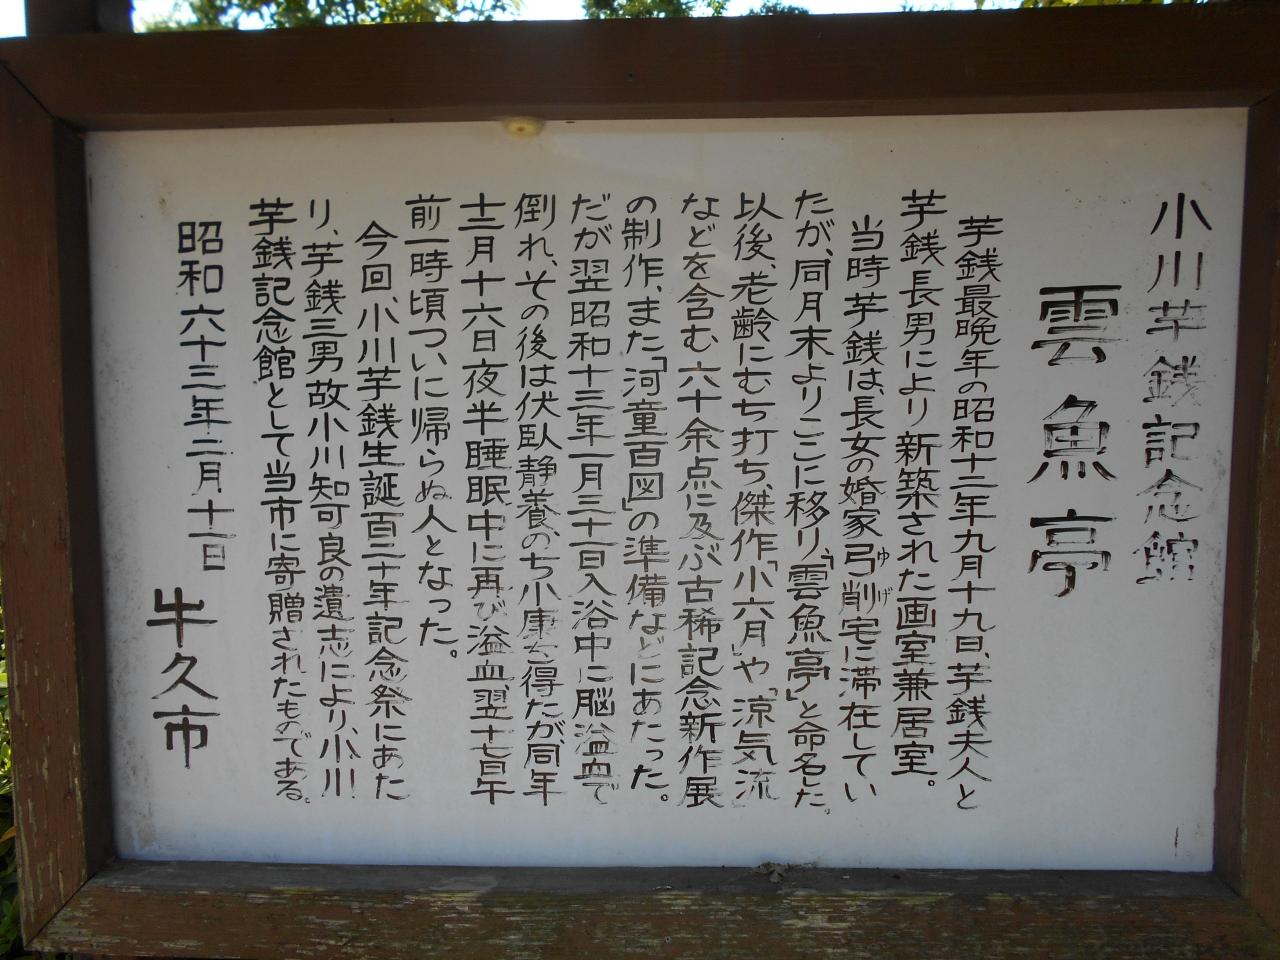 小川芋銭記念館
雲魚亭
芋銭最晩年の昭和十二年九月十九日、芋銭夫人と
芋銭長男により新築された画室兼居室。
当時芋銭は、長女の婚家弓削宅に滞在してい
ゆげ
たが、同月末よりここに移り「雲魚亭」と命名した。
以後、老齢にむち打ち、傑作「小六月」や「涼気流」
などを含む、六十余点に及ぶ古稀記念新作展
の制作、また「河童百図」の準備などにあたった。
だが翌昭和十三年一月三十一日入浴中に脳溢血で
倒れ、その後は伏臥静養、のち小康を得たが同年
十二月十六日夜半睡眠中に再び溢血、翌十七日午
前一時頃ついに帰らぬ人となった。
今回、小川芋銭生誕百二十年記念祭にあた
り、芋銭三男故小川知可良の遺志により、小川
芋銭記念館として当市に寄贈されたものである。
昭和六十三年二月十一日
牛久市